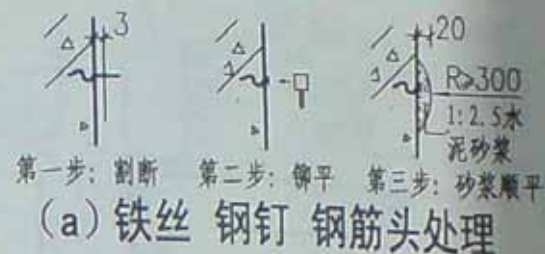 3
20
R≥300
1:2.5水
泥砂浆
第一步: 割断 第二步: 铆平 第三步: 砂浆顺平
(a)铁丝 钢钉 钢筋头处理